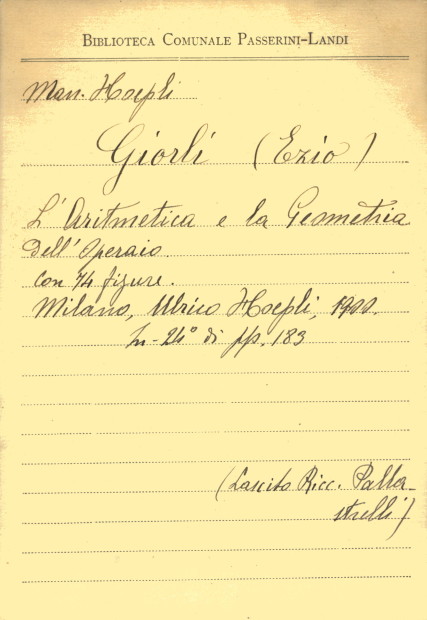 BIBLIOTECA COMUNALE PASSERINI-LANDI
Man. Hoepli
Giorli (Ezio)
L'Aritmetica e la Geometria
dell'Operaio
con 74 figure.
Milano, Ulrico Hoepli, 1900.
In-24° di pp. 183
(Lascito Ricc. Palla-
strelli)